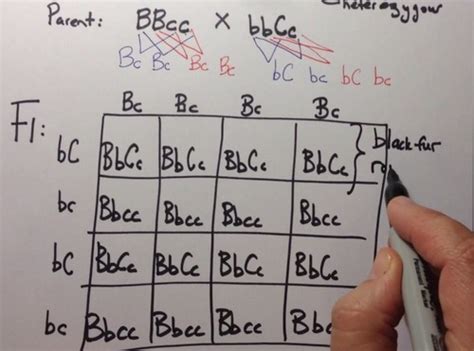 heterozygous
Parent: BBcc × bbCc
Bc Bc Bc Bc bC bc bC bc
Bc Bc Bc Bc
F1:
bC BbCc BbCc BbCc BbCc } black fur
bc Bbcc Bbcc Bbcc Bbcc
bC BbCc BbCc BbCc BbCc
bc Bbcc Bbcc Bbcc Bbcc